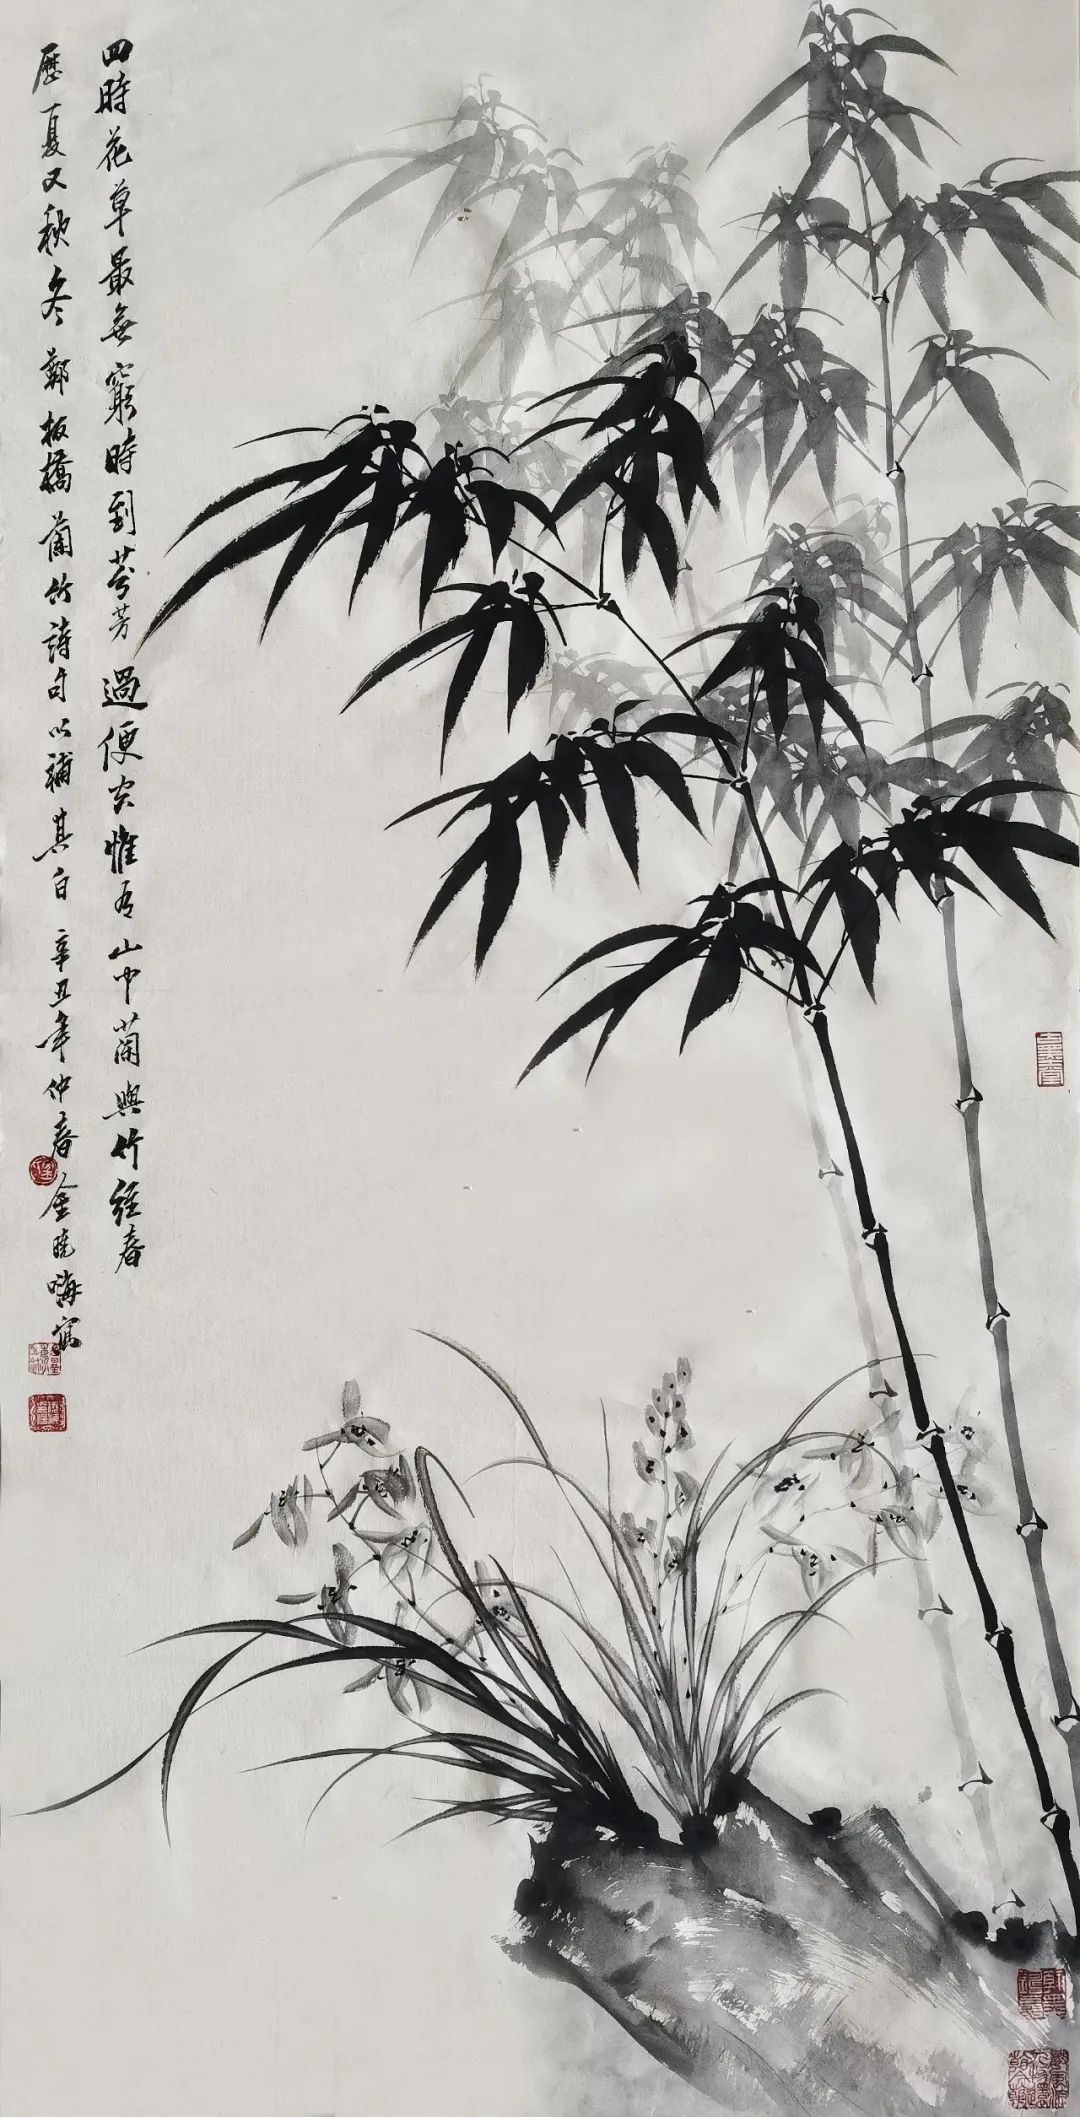 四時花草最無窮時到芬芳過便空惟有山中蘭與竹經春
歷夏又秋冬鄭板橋蘭竹詩句以補其白辛丑年仲春金曉海寫